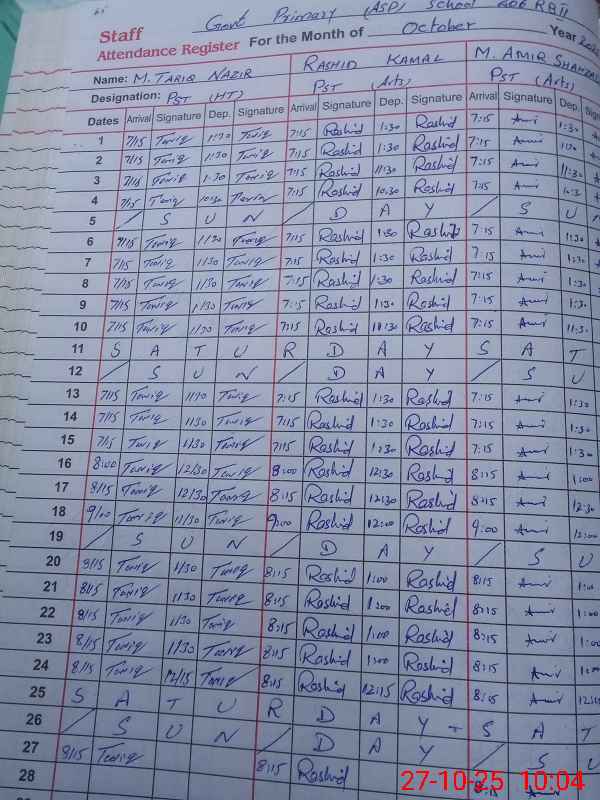 Govt Primary (ASP) School 206 RB II
Staff
Attendance Register For the Month of October Year
Name: M. TARIQ NAZIR RASHID KAMAL M. AMIR SHAHZAD
Designation: PST (HT) PST (Arts) PST (Arts)
Dates Arrival Signature Dep. Signature Arrival Signature Dep. Signature Arrival Signature Dep.
1 7/15 Tariq 1:30 Tariq 7:15 Rashid 1:30 Rashid 7:15 Amir 1:30
2 7/15 Tariq 1:30 Tariq 7:15 Rashid 1:30 Rashid 7:15 Amir
3 7/15 Tariq 1:30 Tariq 7:15 Rashid 11:30 Rashid 7:15 Amir 11:30
4 7/15 Tariq 10:30 Tariq 7:15 Rashid 10:30 Rashid 7:15 Amir 10:3
5 / S U N / D A Y / S U
6 7/15 Tariq 1130 Tariq 7:15 Rashid 1:30 Rashid 7:15 Amir 1:30
7 7/15 Tariq 1/30 Tariq 7:15 Rashid 1:30 Rashid 7:15 Amir 1:30
8 7/15 Tariq 1/30 Tariq 7:15 Rashid 1:30 Rashid 7:15 Amir 1:30
9 7/15 Tariq 1/30 Tariq 7:15 Rashid 1:30 Rashid 7:15 Amir 1:30
10 7/15 Tariq 1130 Tariq 7:15 Rashid 11:30 Rashid 7:15 Amir 11:30
11 S A T U R D A Y S A T
12 / S U N / D A Y / S U
13 7/15 Tariq 1130 Tariq 7:15 Rashid 1:30 Rashid 7:15 Amir 1:30
14 7/15 Tariq 1130 Tariq 7:15 Rashid 1:30 Rashid 7:15 Amir 1:30
15 7/15 Tariq 1/30 Tariq 7:15 Rashid 1:30 Rashid 7:15 Amir 1:30
16 8:00 Tariq 12/30 Tariq 8:00 Rashid 12:30 Rashid 8:15 Amir 1:00
17 8/15 Tariq 12/30 Tariq 8:15 Rashid 12:30 Rashid 8:15 Amir 12:30
18 9/00 Tariq 11/30 Tariq 9:00 Rashid 12:00 Rashid 9:00 Amir 12:00
19 / S U N / D A Y / S U
20 8/15 Tariq 1/30 Tariq 8:15 Rashid 1:00 Rashid 8:15 Amir 1:00
21 8/15 Tariq 1/30 Tariq 8:15 Rashid 1:00 Rashid 8:15 Amir 1:00
22 8/15 Tariq 1/30 Tariq 8:15 Rashid 1:00 Rashid 8:15 Amir 1:00
23 8/15 Tariq 1/30 Tariq 8:15 Rashid 1:00 Rashid 8:15 Amir 1:00
24 8/15 Tariq 12/15 Tariq 8:15 Rashid 12:15 Rashid 8:15 Amir
25 S A T U R D A Y - S A T
26 / S U N / D A Y / S U
27 8/15 Tariq 8:15 Rashid 8:15 Amir
28
27-10-25 10:04